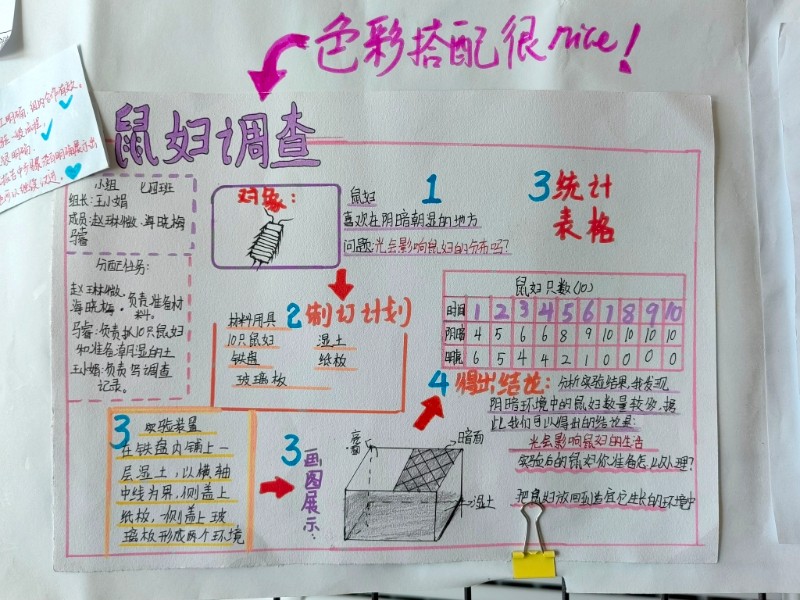 色彩搭配很nice!
鼠妇调查
小组 七四班
组长:王小娟
马睿
分配任务:
海晓梅:负责准备材
料。
马睿:负责抓10只鼠妇
和准备潮湿的土
王小娟:负责写调查
记录。
对象:
1
鼠妇
喜欢在阴暗朝湿的地方
问题:光会影响鼠妇的分布吗?
2 制订计划
材料用具
10只鼠妇 湿土
铁盘 纸板
玻璃板
3 实验装置
在铁盘内铺上一
层湿土,以横轴
中线为界,侧盖上
纸板,一侧盖上玻
璃板形成两个环境
3 画图展示:
暗面
湿土
3 统计
表格
鼠妇只数(10)
时间 1 2 3 4 5 6 7 8 9 10
阴暗 4 5 6 6 8 9 10 10 10 10
明亮 6 5 4 4 2 1 0 0 0 0
4 得出结论:分析实验结果,我发现
阴暗环境中的鼠妇数量较多,据
此我们可以得出的结论是:
光会影响鼠妇的生活
实验后的鼠妇你准备怎么处理?
把鼠妇放回到适宜它生长的环境中